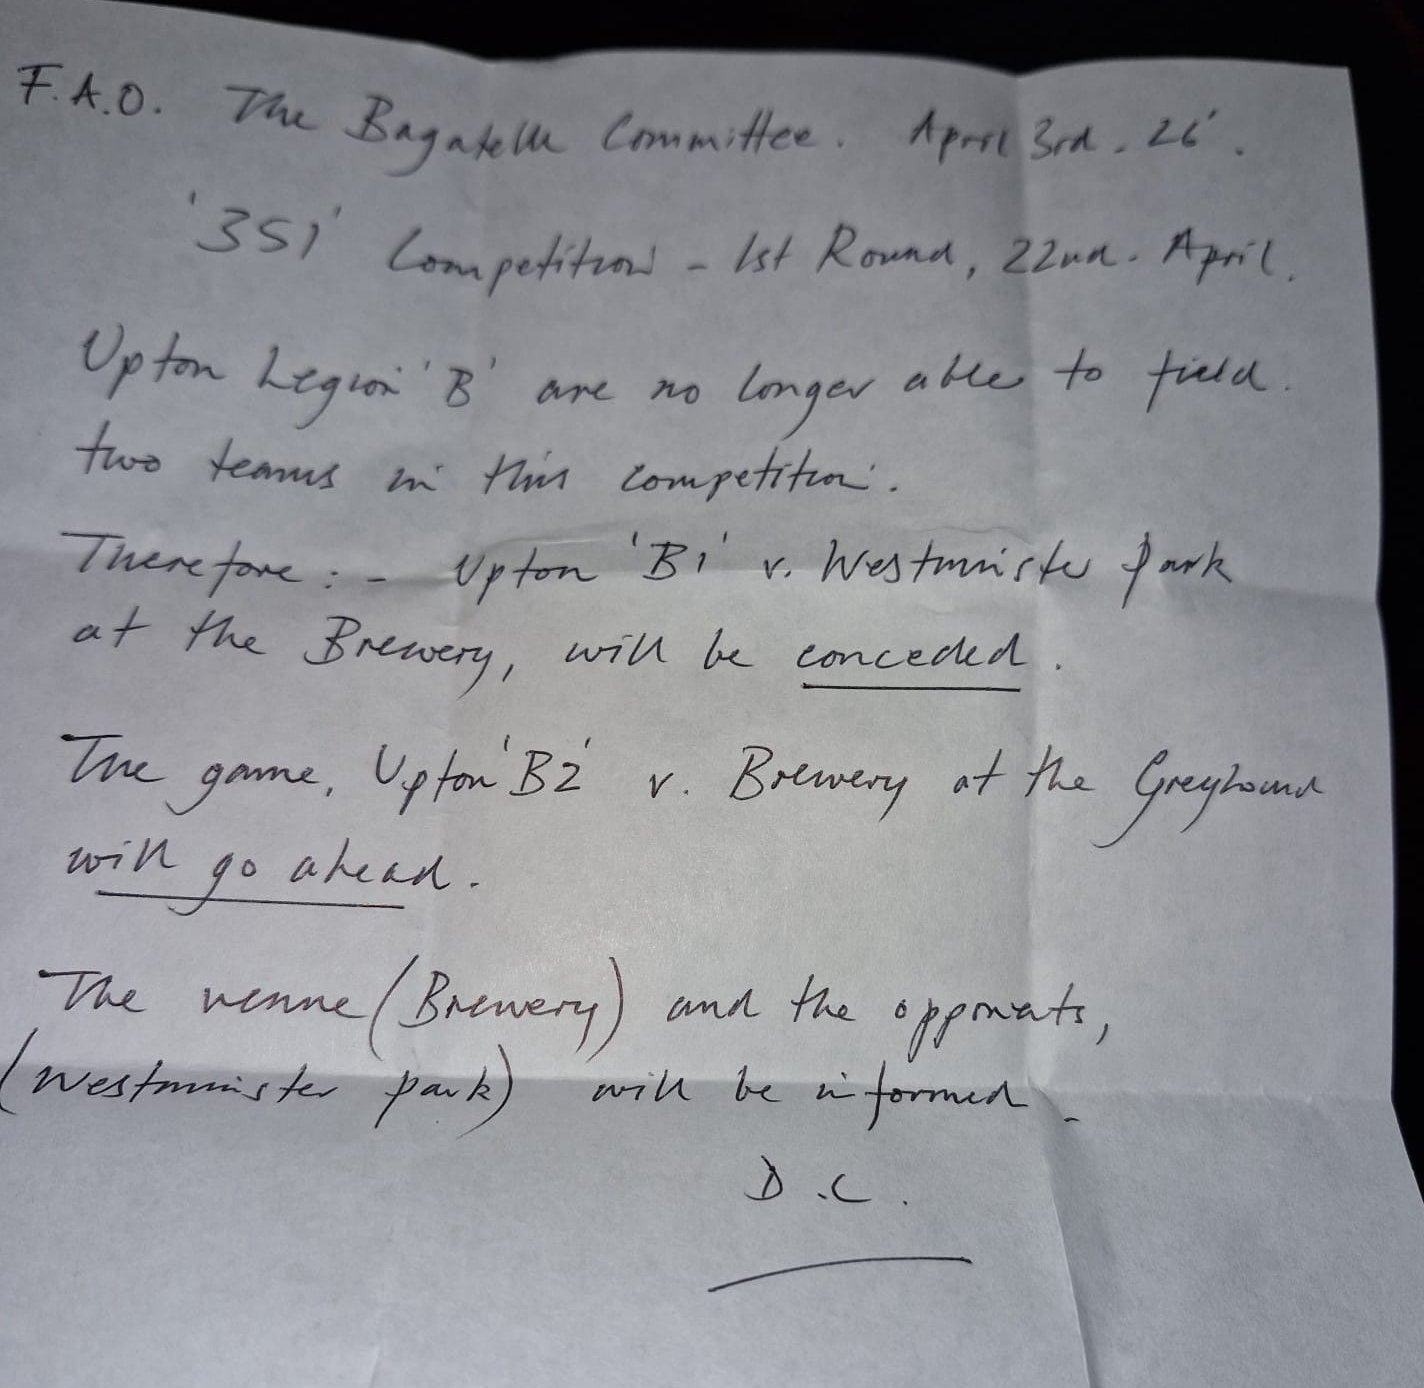 F.A.O. The Bagatelle Committee. April 3rd. 26'.
'351' Competition - 1st Round, 22nd. April.
Upton Legion 'B' are no longer able to field
two teams in this competition.
Therefore :- Upton 'B1' v. Westminster Park
at the Brewery, will be conceded.
The game, Upton 'B2' v. Brewery at the Greyhound
will go ahead.
The venue (Brewery) and the opponents,
(Westminster park) will be informed.
D.C.